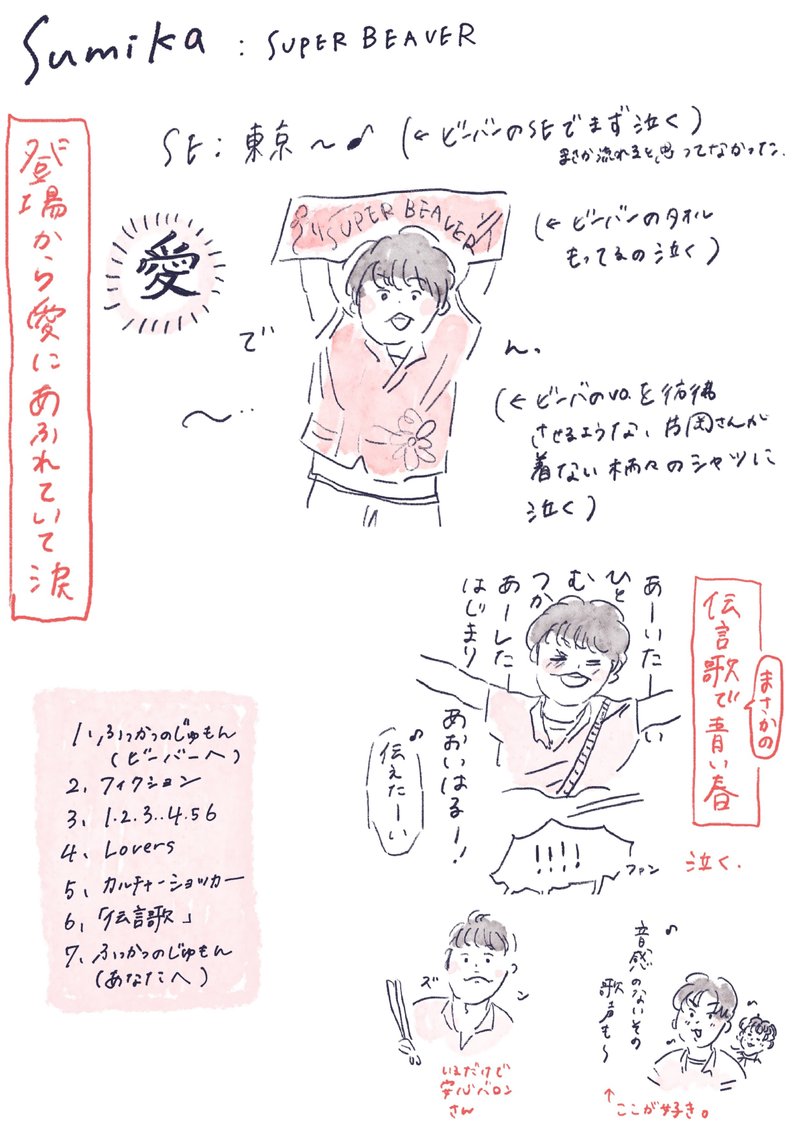 Sumika : SUPER BEAVER
登場から愛にあふれていて涙
SE: 東京〜♪ (←ビーバーのSEでまず泣く)
まさか流れると思ってなかった.
愛
SUPER BEAVER
(←ビーバーのタオル
もってるの泣く)
で
ん。
〜‥
(←ビーバのVo.を彷彿
させるような、片岡さんが
着ない柄々のシャツに
泣く)
まさかの
伝言歌で青い春
泣く.
あーいたーい
ひと
む
つか
あーした
はじまり
あおいはるー!
♪伝えたーい
!!!!
ファン
1. ふっかつのじゅもん
(ビーバーへ)
2. フィクション
3、1.2.3..4.5 6
4、Lovers
5、カルチャーショッカー
6、「伝言歌」
7、ふっかつのじゅもん
(あなたへ)
ズ
ン
いるだけで
安心バロン
さん
♪音感のないその
歌声も〜
↑ここが好き。